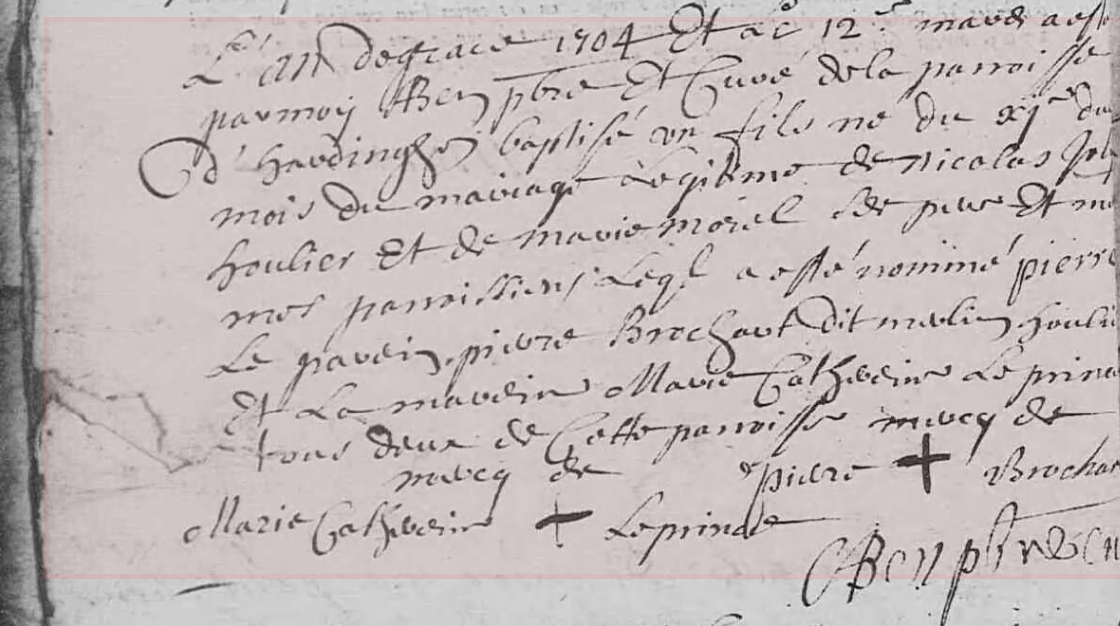 L'an de grace 1704 Et le 12e mars a esté
par moy Ben pbre Et Curé de la parroisse
d'hardinghen baptisé un fils né du xje du
mois du mariage Legitime de Nicolas
houlier Et de marie morel ses pere Et me
mes parroissiens Leql a esté nommé pierre
Le parein pierre Brochart dit merlin houlie
Et La mareine Marie Catherine Leprince
tous deux de Cette parroisse marcq de
marcq de pierre + Brochar
Marie Catherine + Leprince
Ben pbre